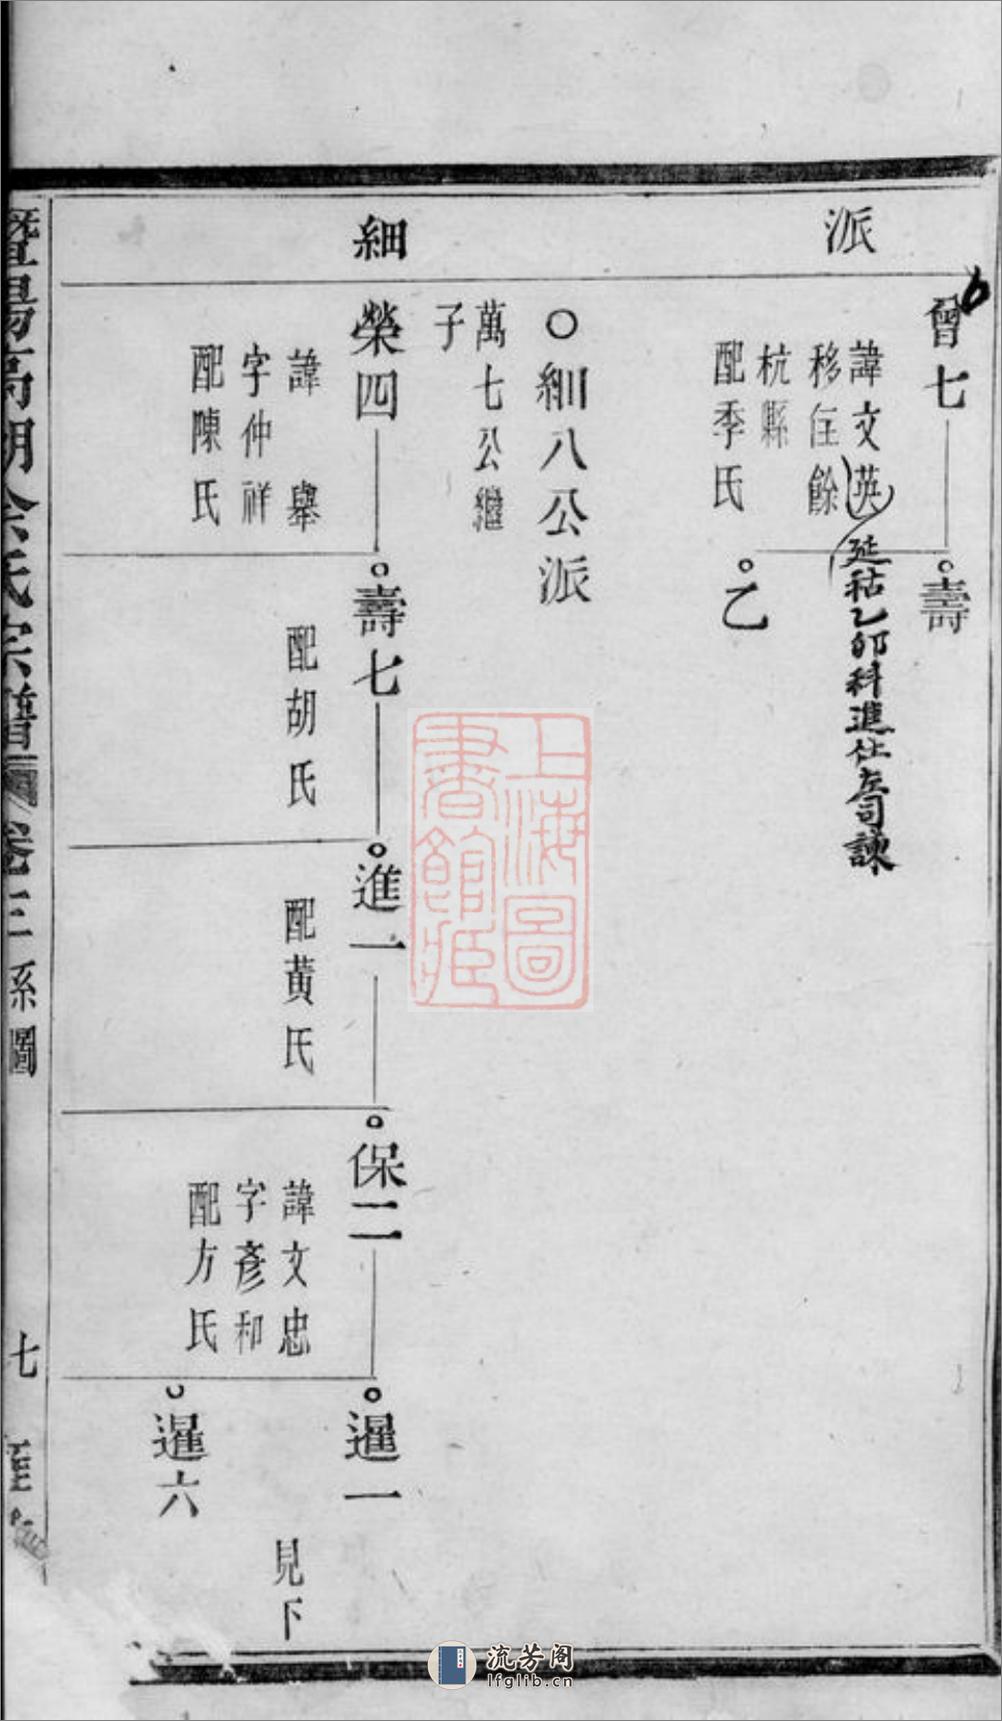 派
細
曾七
諱文英
移住餘
杭縣
配季氏
延祜乙卯科進仕左司諫
壽
乙
○細八公派
萬七公繼
子
榮四
諱舉
字仲祥
配陳氏
壽七
配胡氏
進一
配黃氏
保二
諱文忠
字彥和
配方氏
暹一
見下
暹六
暨陽高湖余氏宗譜
卷三系圖
七
上海圖
書館藏
流芳阁
lfglib.cn